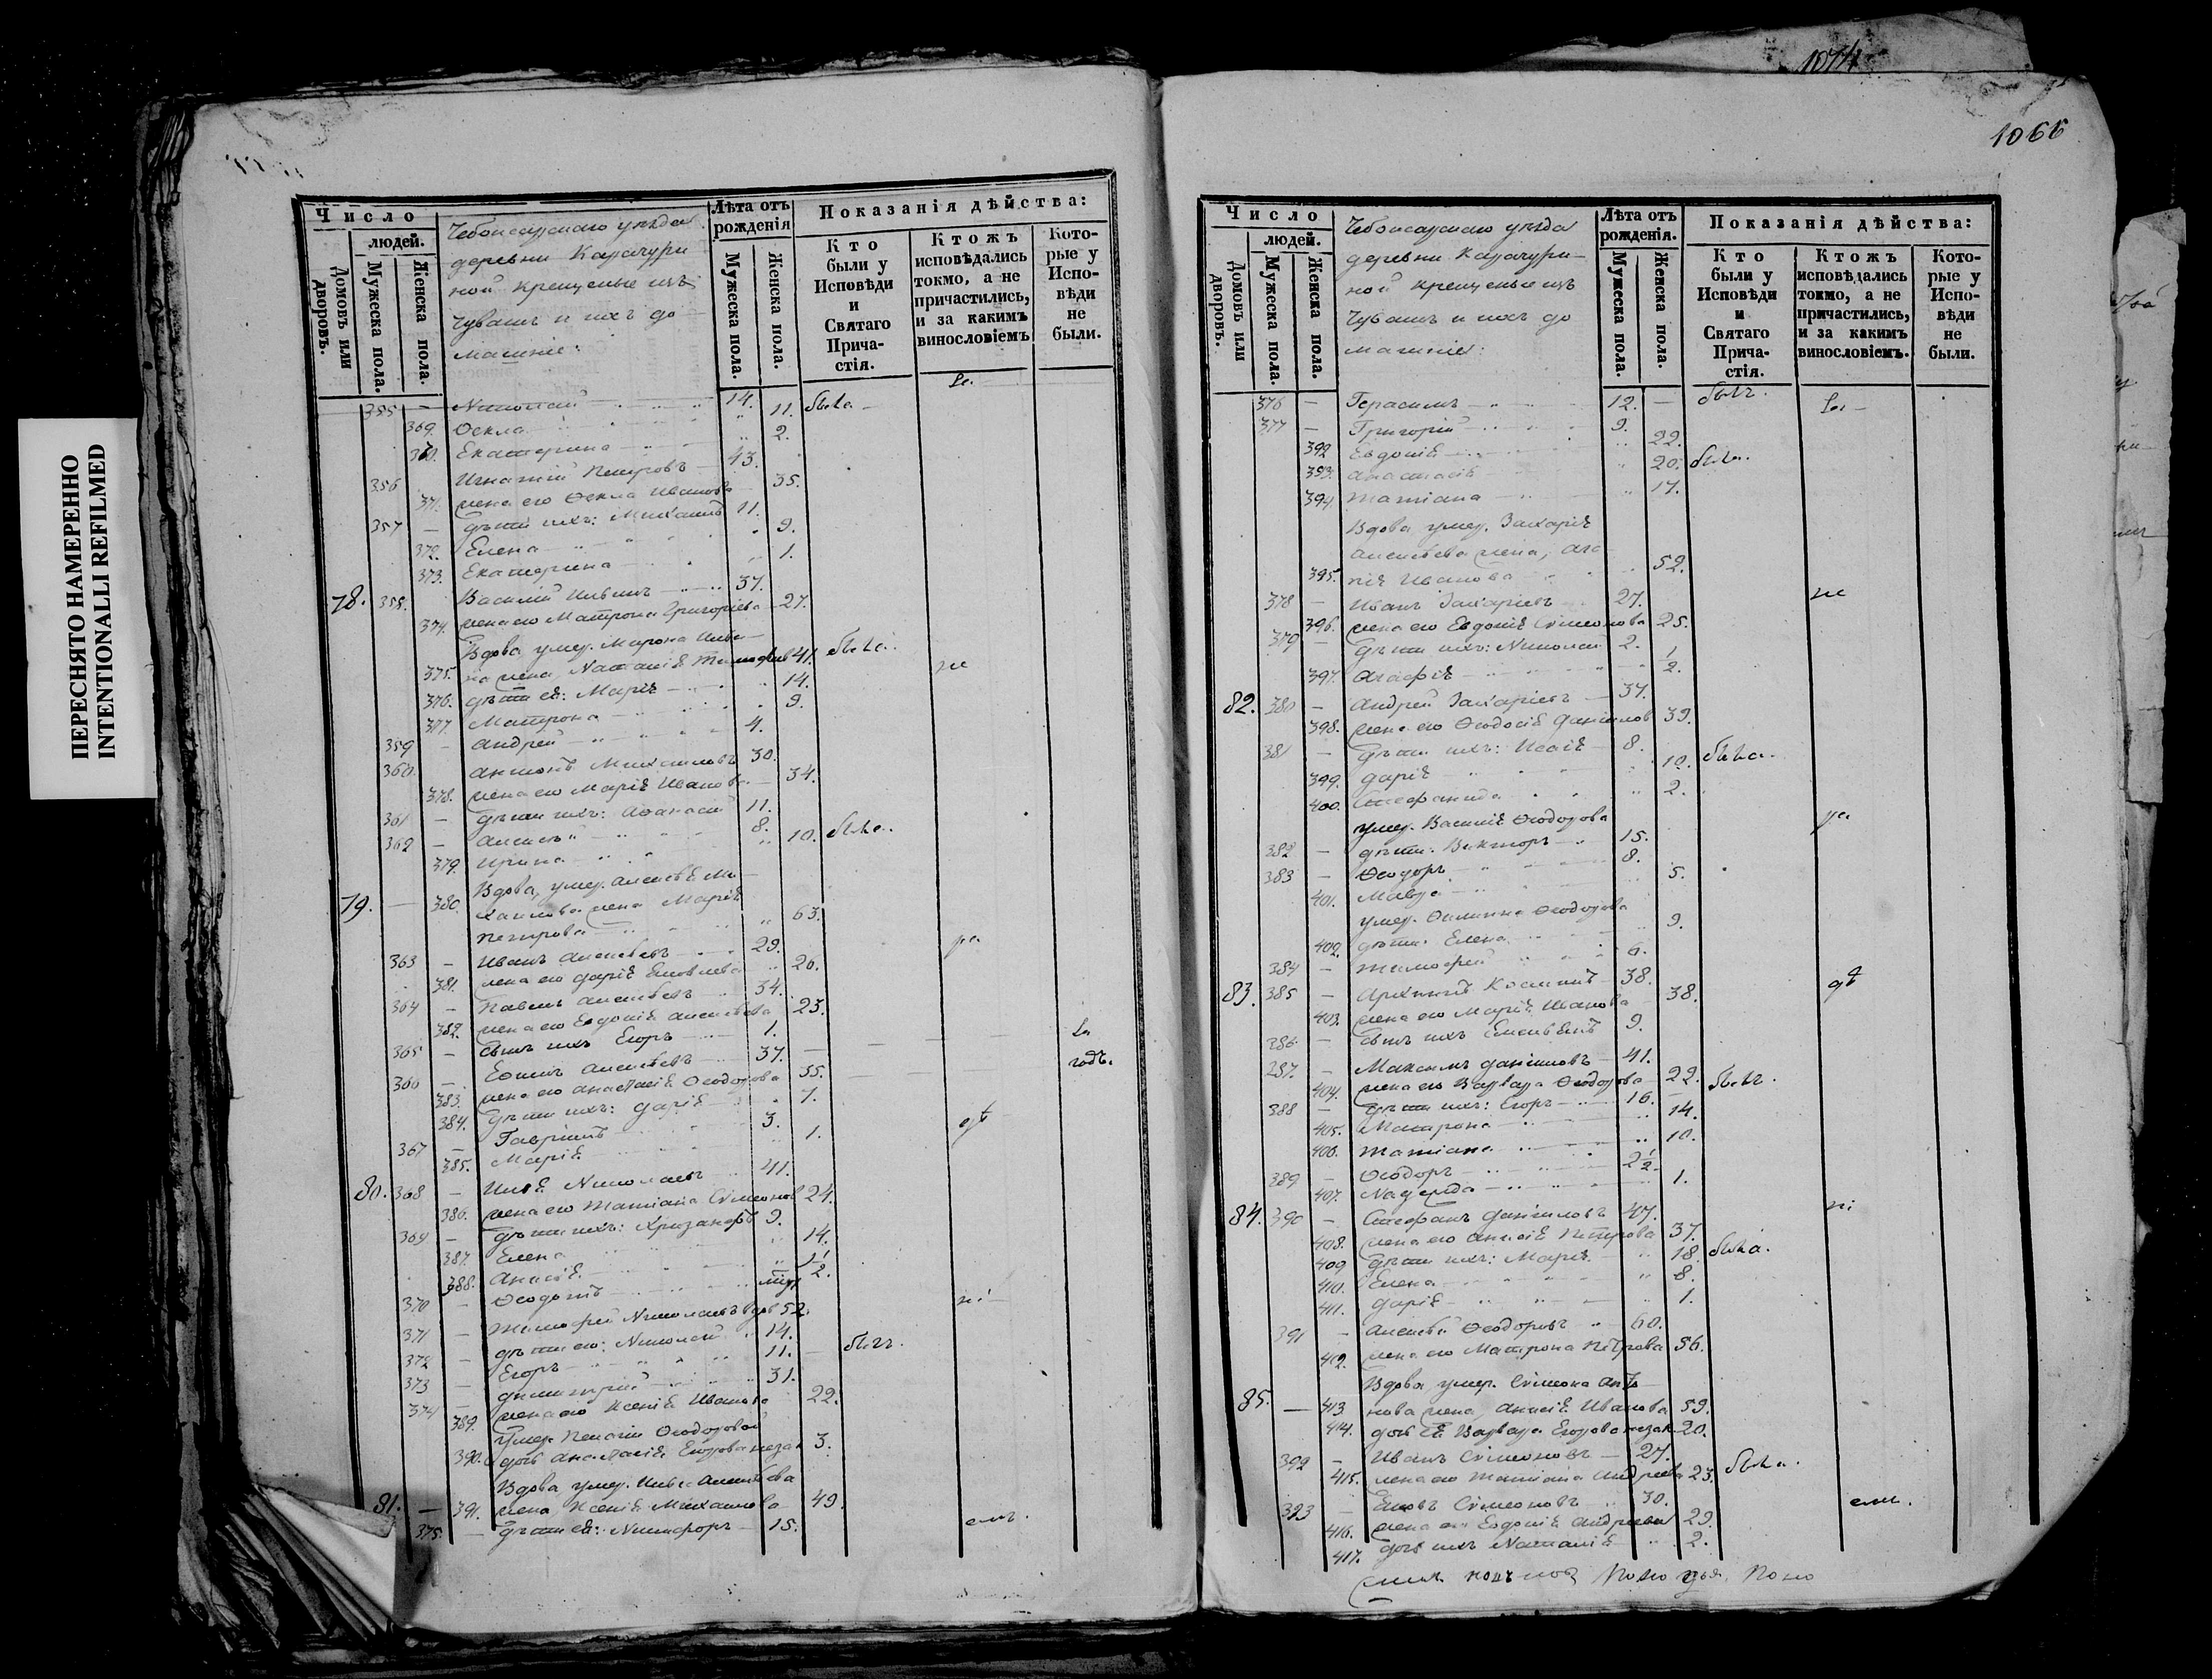 1074
1066
ПЕРЕСНЯТО НАМЕРЕННО
INTENTIONALLI REFILMED
Число
людей.
Домовъ или дворовъ.
Мужеска пола.
Женска пола.
Чебоксарскаго уѣзда
деревни Карачури
ной крещеные изъ
Чувашъ и ихъ до
машніе:
Лѣта отъ рожденія
Мужеска пола.
Женска пола.
Показанія дѣйства:
Кто были у Исповѣди и Святаго Причастія.
Ктожъ исповѣдались токмо, а не причастились, и за какимъ винословіемъ
Которые у Исповѣди не были.
355 — Николай 14.
369. Ѳекла 11.
370. Екатерина 2.
356 Игнатій Петровъ 43.
371. жена его Ѳекла Иванова 35.
357 — дѣти ихъ: Михаилъ 11.
372. Елена 9.
373. Екатерина 1.
78. 358. Василій 37.
374. жена его Матрона Григоріева 27.
Вдова умер. Марона
375. на жена Наталія 41.
376. дѣти ея: Марія 14.
377. Матрона 9.
359 — Андрей 4.
360. Антонъ Михаиловъ 30.
378. жена его Марія Иванова 34.
361 — дѣти ихъ: Аѳанасій 11.
362 — Алексѣй 8.
379. Ирина 10.
Вдова, умер. Алексѣя Ми
79. — 380. хаилова жена Марія
Петрова 63.
363 — Иванъ Алексѣевъ 29.
381. жена его Дарія Яковлева 26.
364 — Павелъ Алексѣевъ 34.
382. жена его Евдокія Алексѣева 23.
365 — сынъ ихъ Егоръ 1.
366 — Ефимъ Алексѣевъ 37.
383. жена его Анастасія Ѳеодорова 35.
384. дѣти ихъ: Дарія 7.
367 — Гавріилъ 3.
385. Марія 1.
80. 368 — Илья Николаевъ 41.
386. жена его Татіана Сѵмеонов 24.
369 — дѣти ихъ: Хрисанфъ 9.
387. Елена 14.
388. Анисія 1 1/2.
370 — Ѳеодотъ
371 — Тимофей Николаевъ вдов 52.
372 — дѣти его: Николай 14.
373 — Егоръ 11.
374 — Димитрій 31.
389. жена его Ксенія Иванова 22.
Умер. Пелагіи Ѳеодоровой
390. дочь Анастасія Егорова незак 3.
Вдова, умер. Ильи Алексѣева
81. — 391. жена Ксенія Михаилова 49.
375. — дѣти ея: Никифоръ 15.
Число
людей.
Домовъ или дворовъ.
Мужеска пола.
Женска пола.
Чебоксарскаго уѣзда
деревни Карачури-
ной крещеные изъ
Чувашъ и ихъ до
машніе:
Лѣта отъ рожденія.
Мужеска пола.
Женска пола.
Показанія дѣйства:
Кто были у Исповѣди и Святаго Причастія.
Ктожъ исповѣдались токмо, а не причастились, и за какимъ винословіемъ.
Которые у Исповѣди не были.
376 — Герасимъ 12. —
377 — Григорій 9.
392 Евдокія 22.
393. Анастасія 20.
394 Татіана 17.
Вдова умер. Захарія
Алексѣева жена, Ага
395. пія Иванова 52.
378 — Иванъ Захаріевъ 27.
396. жена его Евдокія Сѵмеонова 25.
379 — дѣти ихъ: Николай 2.
397. Агафія 1/2.
82. 380 — Андрей Захаріевъ 37.
398. жена его Ѳеодосія Даніилов 39.
381 — дѣти ихъ: Исаія 8.
399. Дарія 10.
400. Стефанида 2.
умер. Василія Ѳеодорова
382 — дѣти: Викторъ 15.
383 — Ѳеодоръ 8.
401. Мавра 5.
умер. Филиппа Ѳеодорова
402. дѣти: Елена 9.
384 — Тимофей 6.
83. 385 — Архиппъ Космин 38.
403. жена его Марія Иванова 38.
386 — сынъ ихъ 9.
387. — Максимъ Даніиловъ 41.
404. жена его Варвара Ѳеодорова 22.
388 — дѣти ихъ: Егоръ 16.
405. Матрона 14.
406. Татіана 10.
389 — Ѳеодоръ 2 1/2.
407. Надежда 1.
84. 390 — Стефанъ Даніиловъ 47.
408. жена его Анисія Петрова 37.
409 дѣти ихъ: Марія 18
410. Елена 8.
411. Дарія 1.
391 — Алексѣй Ѳеодоровъ 60.
412. жена его Матрона Петрова 56.
Вдова умер. Сѵмеона Анто-
85. — 413 нова жена, Анисія Иванова 59.
414. дочь ея Варвара Егорова незак. 20.
392 — Иванъ Сѵмеоновъ 27.
415. жена его Татіана Андреева 23.
393 — Яковъ Сѵмеоновъ 30.
416. жена его Евдокія Андреева 29.
417. дочь ихъ Наталія 2.